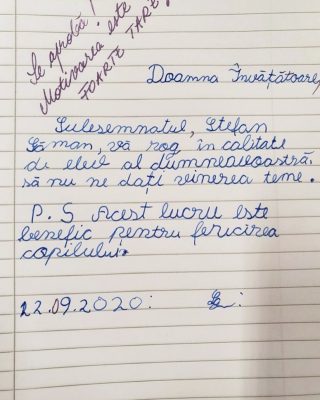 Se aprobă!
Motivarea este
FOARTE TARE!
Doamna Învățătoare,
Subsemnatul, Ștefan
Săman, vă rog în calitate
de elev al dumneavoastră,
să nu ne dați vinerea teme.
P.S Acest lucru este
benefic pentru fericirea
copilului.
22.09.2020: